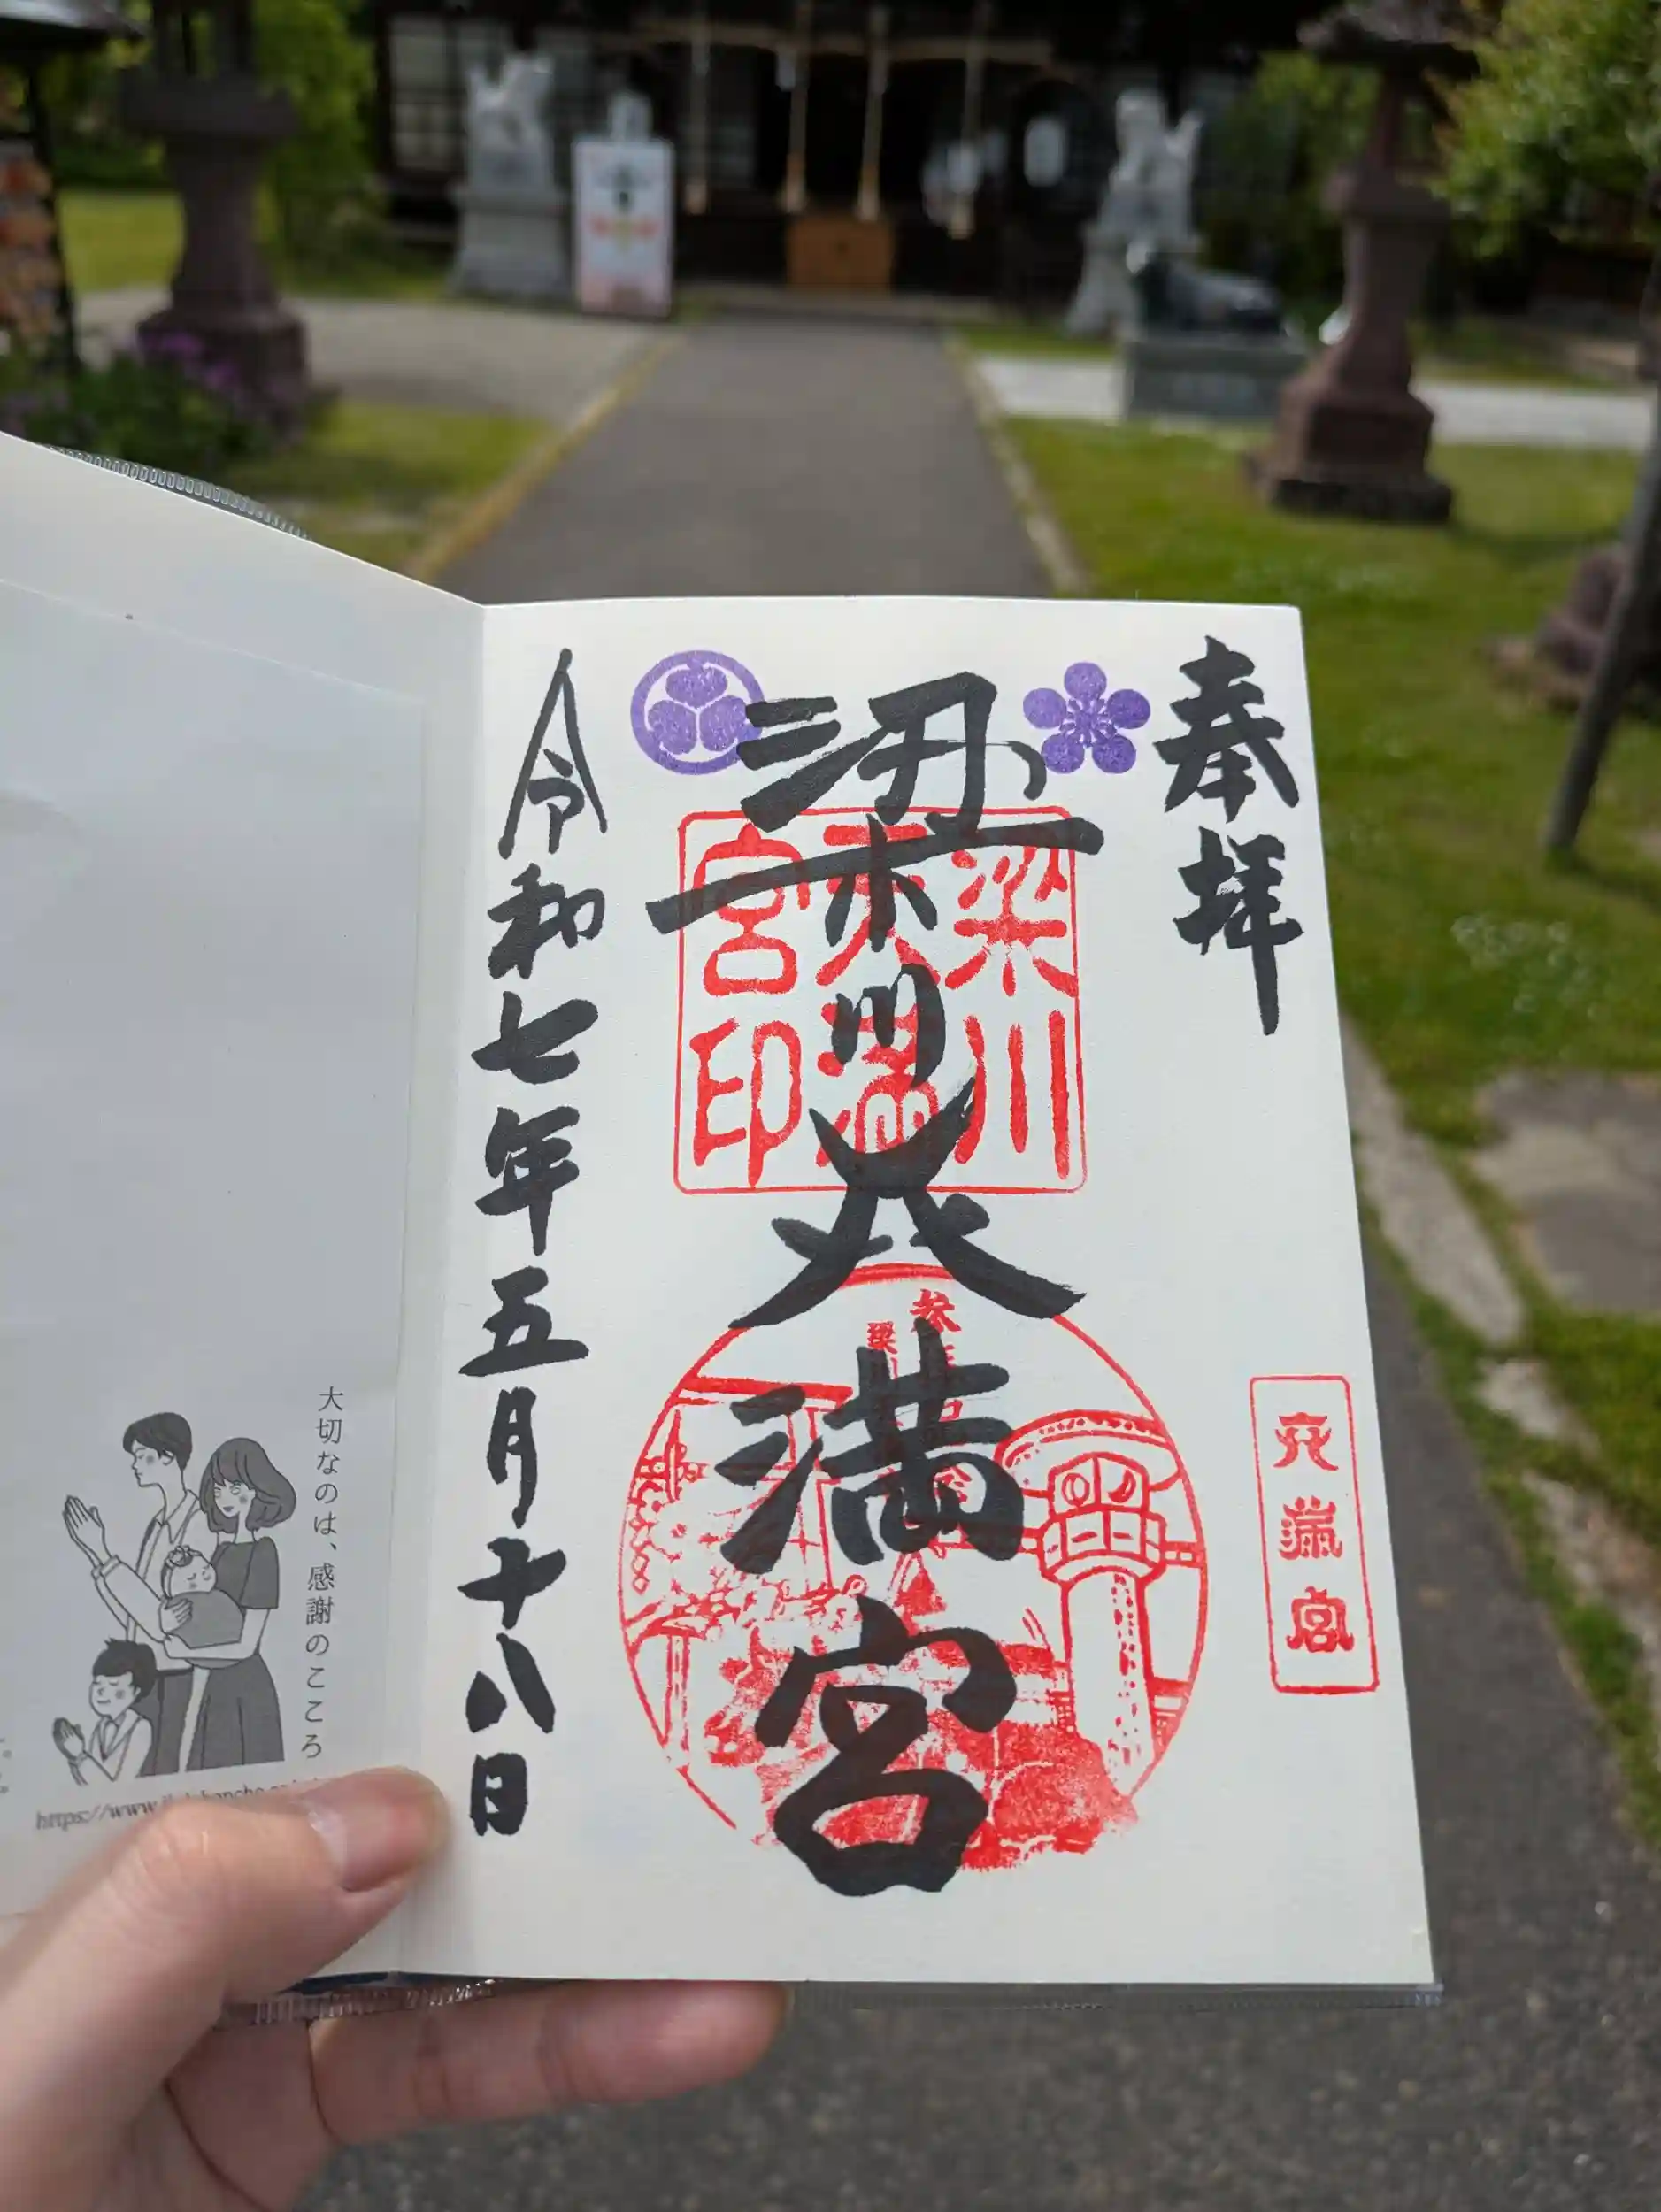 奉拝
梁川天満宮
令和七年五月十八日
梁川
天満
宮印
天満宮
大切なのは、感謝のこころ
https://www.